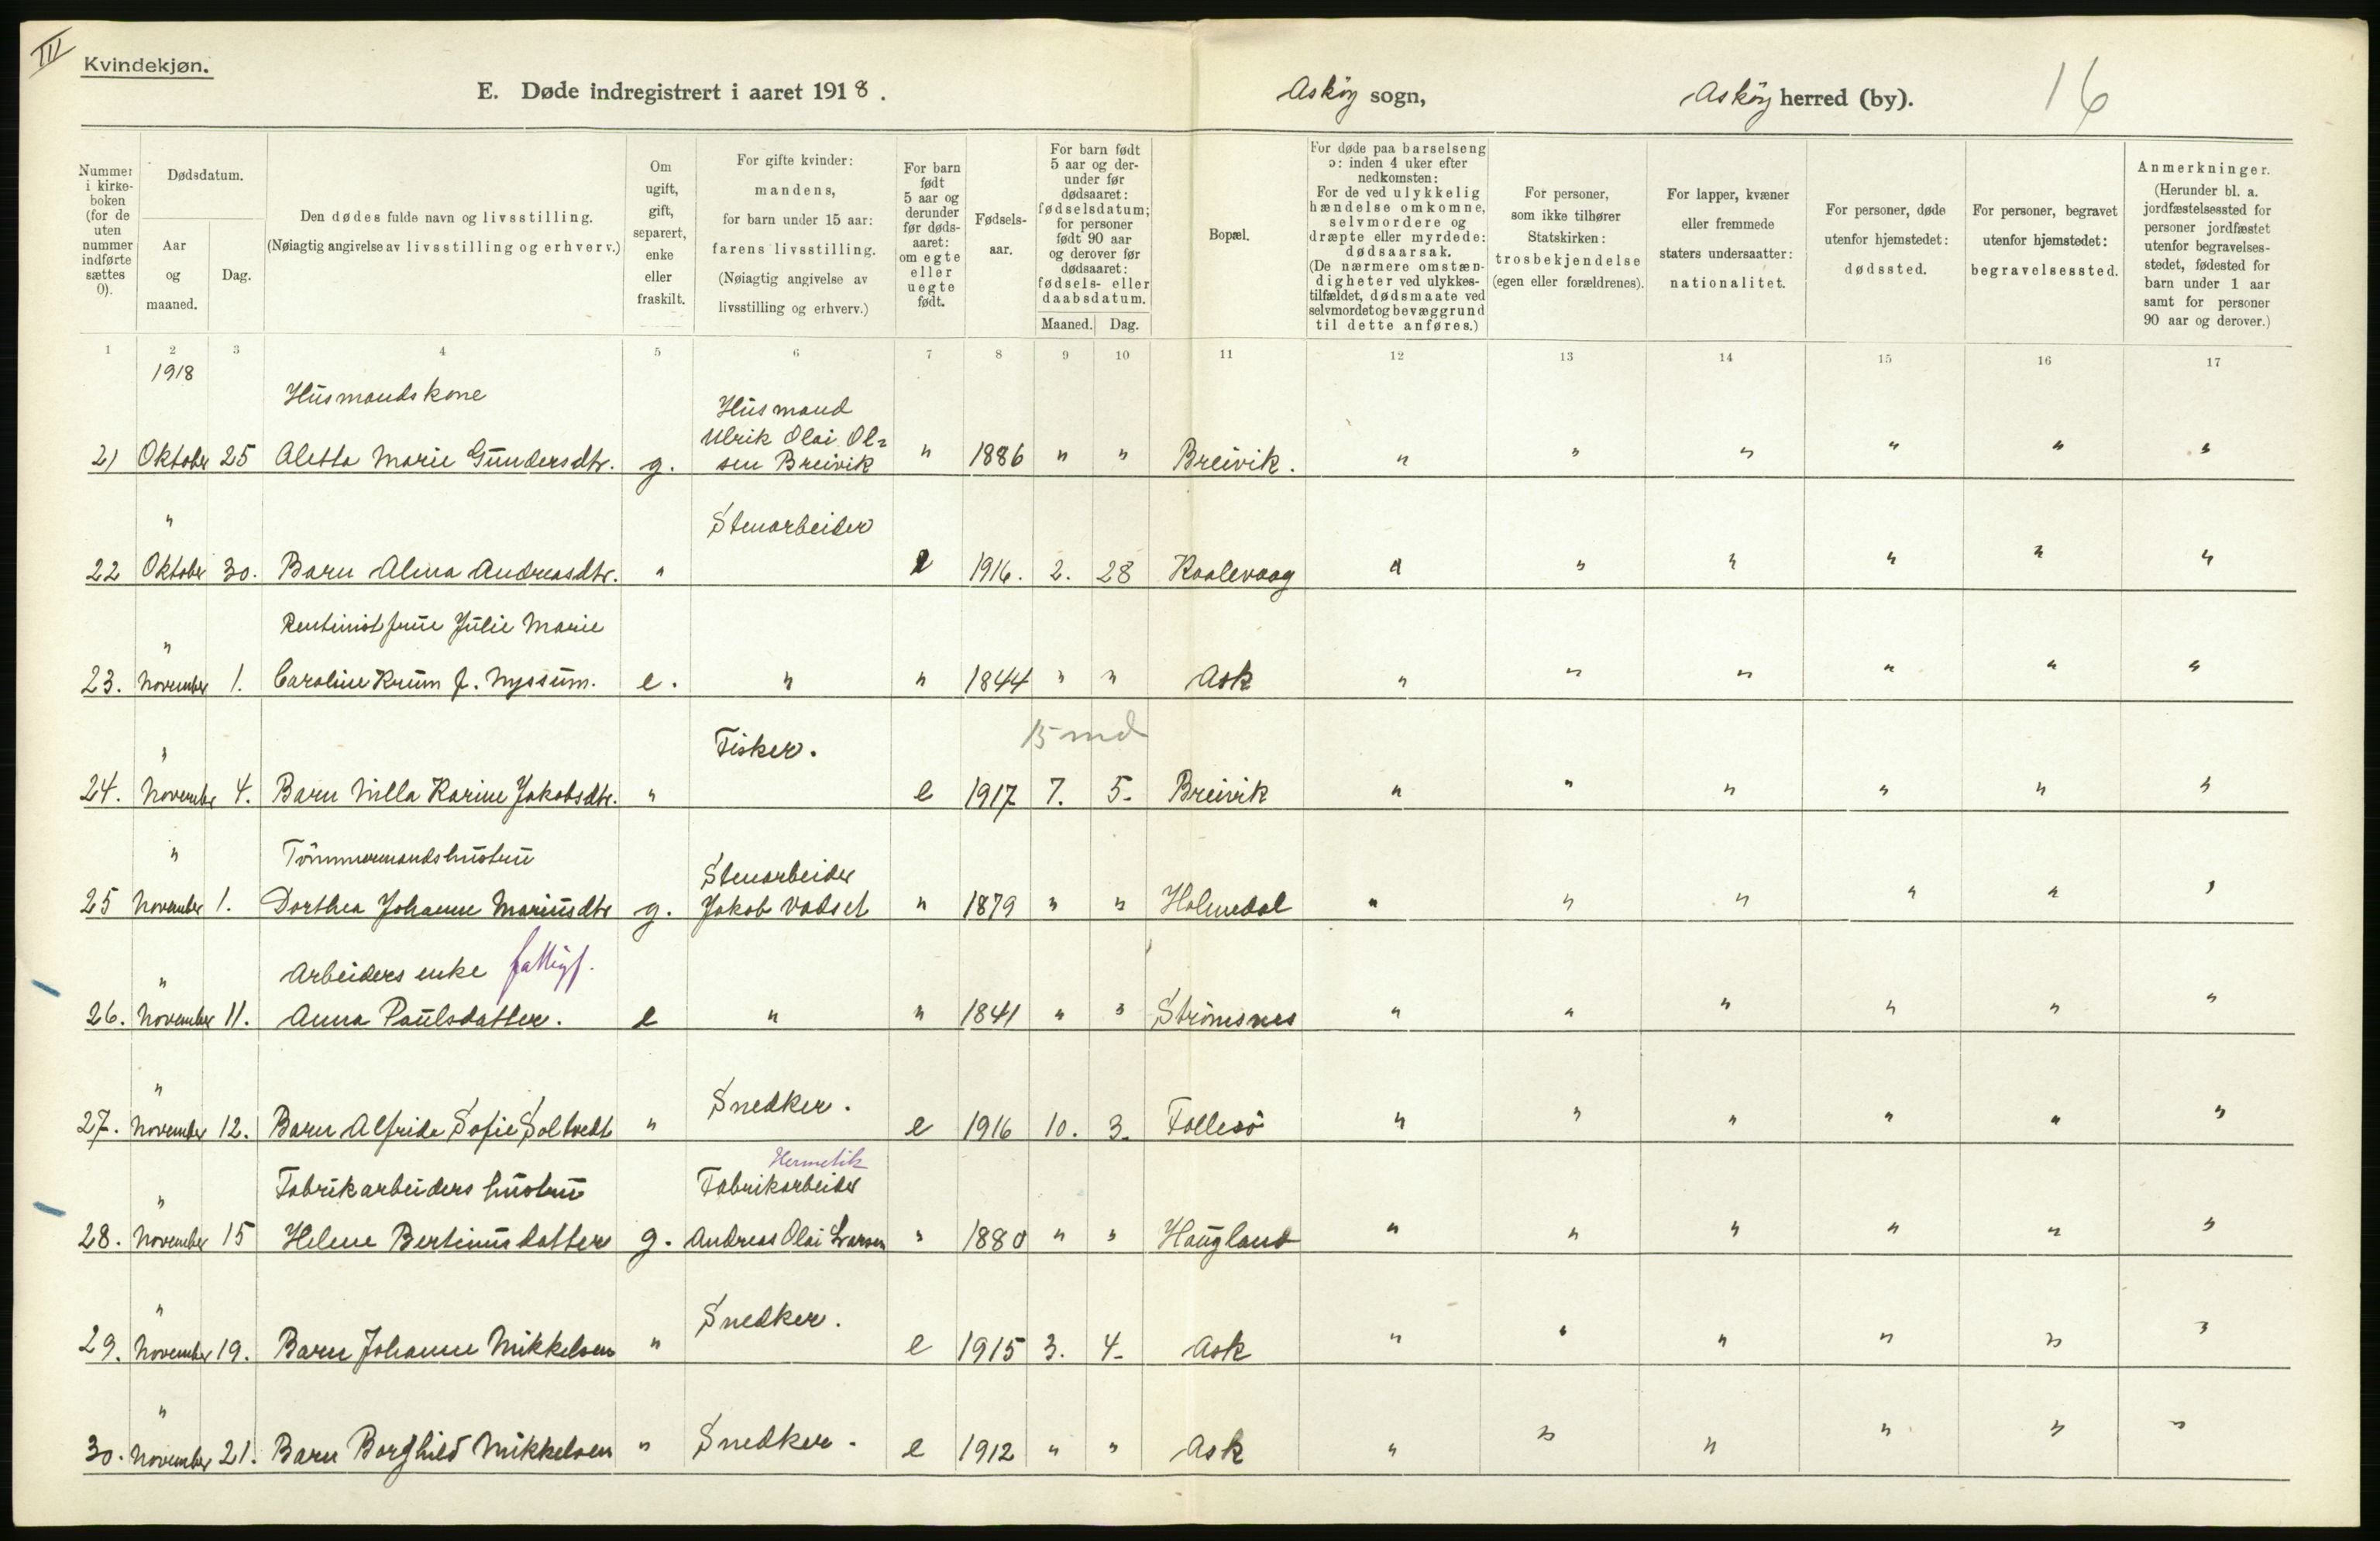 III
Kvindekjøn.
E. Døde indregistrert i aaret 1918.
Asköy sogn,
Asköy herred (by).
16
Nummer i kirkeboken (for de uten nummer indførte sættes 0).
Dødsdatum.
Aar og maaned.
Dag.
Den dødes fulde navn og livsstilling.
(Nøiagtig angivelse av livsstilling og erhverv.)
Om ugift, gift, separert, enke eller fraskilt.
For gifte kvinder: mandens, for barn under 15 aar: farens livsstilling. (Nøiagtig angivelse av livsstilling og erhverv.)
For barn født 5 aar og derunder før dødsaaret: om egte eller uegte født.
Fødselsaar.
For barn født 5 aar og derunder før dødsaaret: fødselsdatum; for personer født 90 aar og derover før dødsaaret: fødsels- eller daabsdatum.
Maaned. Dag.
Bopæl.
For døde paa barselseng ɔ: inden 4 uker efter nedkomsten: For de ved ulykkelig hændelse omkomne, selvmordere og dræpte eller myrdede: dødsaarsak. (De nærmere omstændigheter ved ulykkestilfældet, dødsmaate ved selvmordet og bevæggrund til dette anføres.)
For personer, som ikke tilhører Statskirken: trosbekjendelse (egen eller forældrenes).
For lapper, kvæner eller fremmede staters undersaatter: nationalitet.
For personer, døde utenfor hjemstedet: dødssted.
For personer, begravet utenfor hjemstedet: begravelsessted.
Anmerkninger. (Herunder bl. a. jordfæstelsessted for personer jordfæstet utenfor begravelsesstedet, fødested for barn under 1 aar samt for personer 90 aar og derover.)
1 2 3 4 5 6 7 8 9 10 11 12 13 14 15 16 17
1918
Husmandskone
Husmand
Ulrik Olai Ol=
21 Oktober 25 Aletta Marie Gundersdtr. g. sen Breivik " 1886 " " Breivik. " " " " " "
" Stenarbeider
22 Oktober 30. Barn Alma Andreasdtr. " e 1916. 2. 28 Kaalevaag " " " " " "
Rentinistfrue Julie Marie
"
23. November 1. Caroline Krum f. Nyssum. e. " " 1844 " " Ask " " " " " "
" Fisker. 15 md
24. November 4. Barn Nilla Karine Jakobsdtr. " e 1917 7. 5. Breivik " " " " " "
" Tömmermandshustru
Stenarbeider
25 November 1. Dorthea Johanne Mariusdtr g. Jakob Vadset " 1879 " " Holmedal " " " " " "
" Arbeiders enke fattigf.
26. November 11. Anna Paulsdatter. e " " 1841 " " Strömsnes " " " " " "
" Snedker.
27. November 12. Barn Alfrida Sofie Soltvedt " e 1916 10. 3. Follesö " " " " " "
Hermetik
" Fabrikarbeiders hustru Fabrikarbeider
28. November 15 Helene Bertinusdatter g. Andreas Olai Larsen " 1880 " " Haugland " " " " " "
" Snedker.
29. November 19. Barn Johanne Mikkelsen " e 1915 3. 4. Ask " " " " " "
"
30. November 21. Barn Borghild Mikkelsen " Snedker. e 1912 " " Ask " " " " " "